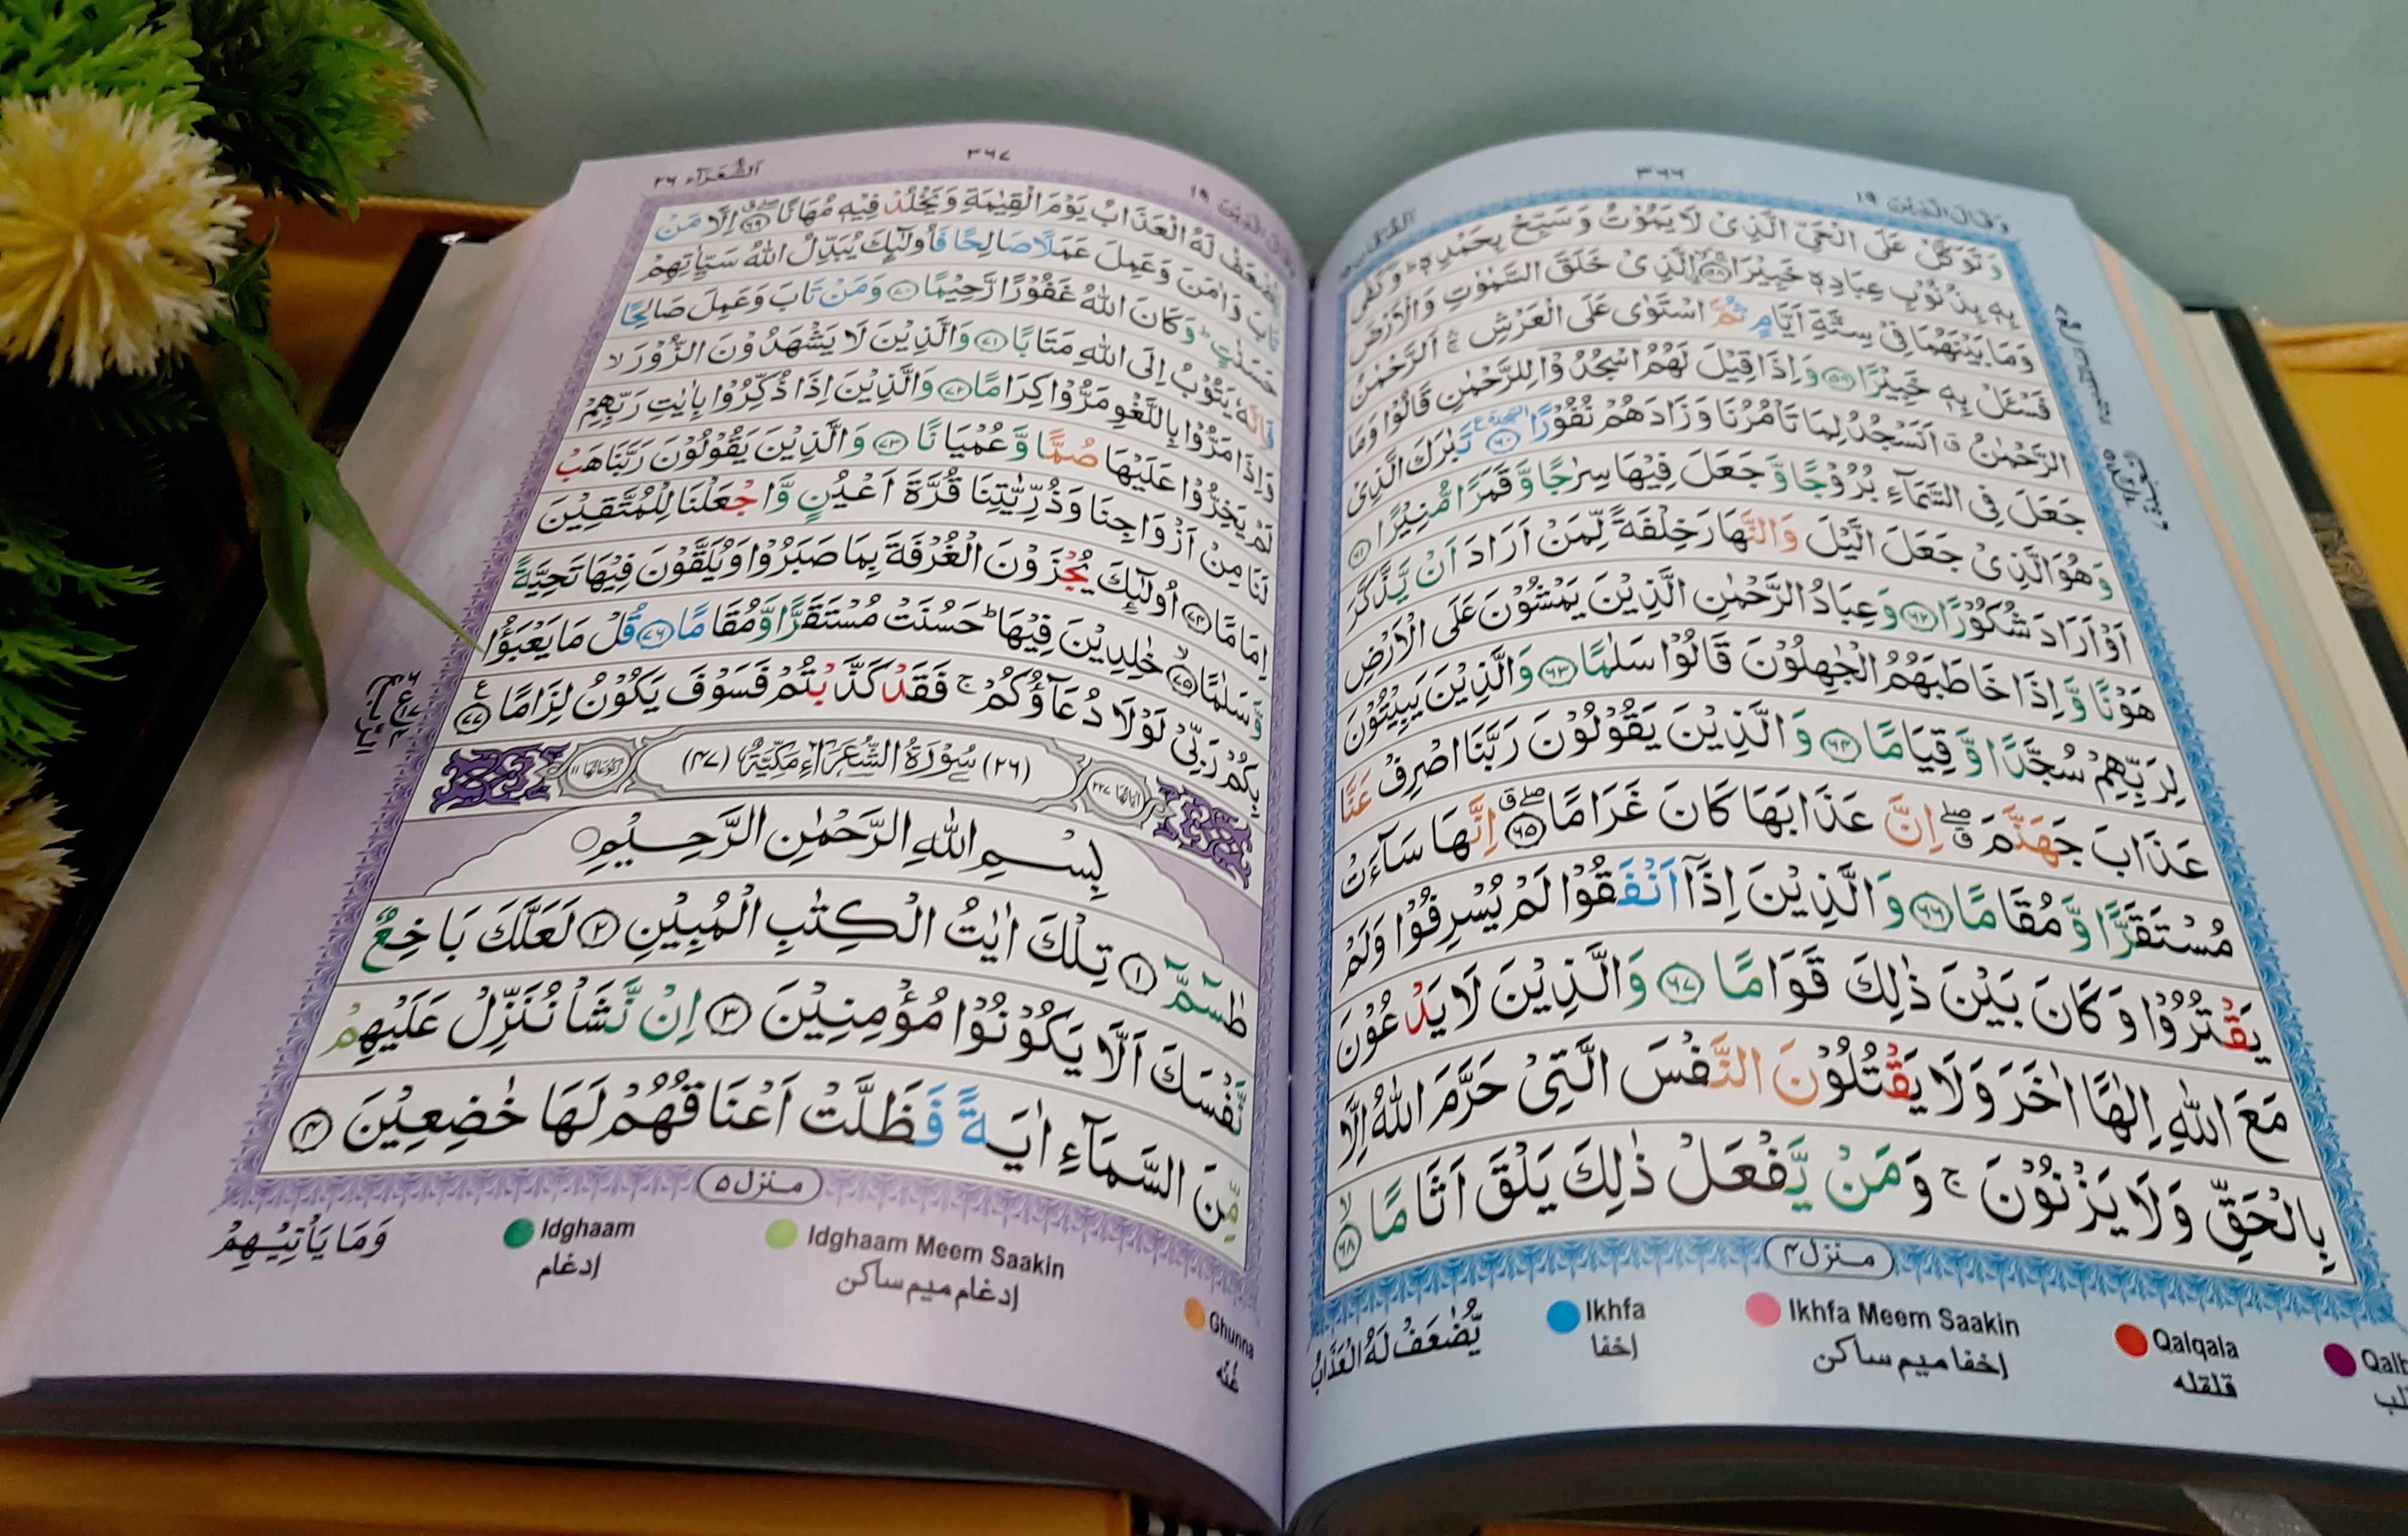 وَقَالَ الَّذِیْنَ ١٩
٣٦٦
اَلْفُرْقَان
وَتَوَکَّلْ عَلَی الْحَیِّ الَّذِیْ لَا یَمُوْتُ وَسَبِّحْ بِحَمْدِہٖ ؕ وَکَفٰی
بِہٖ بِذُنُوْبِ عِبَادِہٖ خَبِیْرَا ۝٥٨ الَّذِیْ خَلَقَ السَّمٰوٰتِ وَالْاَرْضَ
وَمَا بَیْنَهُمَا فِیْ سِتَّةِ اَیَّامٍ ثُمَّ اسْتَوٰی عَلَی الْعَرْشِ ۚ اَلرَّحْمٰنُ
فَسْـَٔلْ بِہٖ خَبِیْرًا ۝٥٩ وَاِذَا قِیْلَ لَهُمُ اسْجُدُوْا لِلرَّحْمٰنِ قَالُوْا وَمَا
الرَّحْمٰنُ ۗ اَنَسْجُدُ لِمَا تَاْمُرُنَا وَزَادَهُمْ نُفُوْرًا ۝٦٠ السجدة تَبٰرَكَ الَّذِیْ
جَعَلَ فِی السَّمَآءِ بُرُوْجًا وَّجَعَلَ فِیْهَا سِرٰجًا وَّقَمَرًا مُّنِیْرًا ۝٦١
وَهُوَ الَّذِیْ جَعَلَ الَّیْلَ وَالنَّهَارَ خِلْفَةً لِّمَنْ اَرَادَ اَنْ یَّذَّکَّرَ
اَوْ اَرَادَ شُکُوْرًا ۝٦٢ وَعِبَادُ الرَّحْمٰنِ الَّذِیْنَ یَمْشُوْنَ عَلَی الْاَرْضِ
هَوْنًا وَّاِذَا خَاطَبَهُمُ الْجٰهِلُوْنَ قَالُوْا سَلٰمًا ۝٦٣ وَالَّذِیْنَ یَبِیْتُوْنَ
لِرَبِّهِمْ سُجَّدًا وَّقِیَامًا ۝٦٤ وَالَّذِیْنَ یَقُوْلُوْنَ رَبَّنَا اصْرِفْ عَنَّا
عَذَابَ جَهَنَّمَ ۖ اِنَّ عَذَابَهَا کَانَ غَرَامًا ۝٦٥ اِنَّهَا سَآءَتْ
مُسْتَقَرًّا وَّمُقَامًا ۝٦٦ وَالَّذِیْنَ اِذَآ اَنْفَقُوْا لَمْ یُسْرِفُوْا وَلَمْ
یَقْتُرُوْا وَکَانَ بَیْنَ ذٰلِكَ قَوَامًا ۝٦٧ وَالَّذِیْنَ لَا یَدْعُوْنَ
مَعَ اللّٰهِ اِلٰهًا اٰخَرَ وَلَا یَقْتُلُوْنَ النَّفْسَ الَّتِیْ حَرَّمَ اللّٰهُ اِلَّا
بِالْحَقِّ وَلَا یَزْنُوْنَ ۚ وَمَنْ یَّفْعَلْ ذٰلِكَ یَلْقَ اَثَامًا ۝٦٨
منزل ٤
یُّضٰعَفْ لَهُ الْعَذَابُ
Ikhfa
إخفا
Ikhfa Meem Saakin
إخفا میم ساکن
Qalqala
قلقله
٣٦٧
اَلشُّعَرَآء ٢٦
یُّضٰعَفْ لَهُ الْعَذَابُ یَوْمَ الْقِیٰمَةِ وَیَخْلُدْ فِیْہٖ مُهَانًا ۝٦٩ اِلَّا مَنْ
تَابَ وَاٰمَنَ وَعَمِلَ عَمَلًا صَالِحًا فَاُولٰٓئِكَ یُبَدِّلُ اللّٰهُ سَیِّاٰتِهِمْ
حَسَنٰتٍ ؕ وَکَانَ اللّٰهُ غَفُوْرًا رَّحِیْمًا ۝٧٠ وَمَنْ تَابَ وَعَمِلَ صَالِحًا
فَاِنَّهٗ یَتُوْبُ اِلَی اللّٰهِ مَتَابًا ۝٧١ وَالَّذِیْنَ لَا یَشْهَدُوْنَ الزُّوْرَ ۙ
وَاِذَا مَرُّوْا بِاللَّغْوِ مَرُّوْا کِرَامًا ۝٧٢ وَالَّذِیْنَ اِذَا ذُکِّرُوْا بِاٰیٰتِ رَبِّهِمْ
لَمْ یَخِرُّوْا عَلَیْهَا صُمًّا وَّعُمْیَانًا ۝٧٣ وَالَّذِیْنَ یَقُوْلُوْنَ رَبَّنَا هَبْ
لَنَا مِنْ اَزْوَاجِنَا وَذُرِّیّٰتِنَا قُرَّةَ اَعْیُنٍ وَّاجْعَلْنَا لِلْمُتَّقِیْنَ
اِمَامًا ۝٧٤ اُولٰٓئِكَ یُجْزَوْنَ الْغُرْفَةَ بِمَا صَبَرُوْا وَیُلَقَّوْنَ فِیْهَا تَحِیَّةً
وَّسَلٰمًا ۝٧٥ خٰلِدِیْنَ فِیْهَا ؕ حَسُنَتْ مُسْتَقَرًّا وَّمُقَامًا ۝٧٦ قُلْ مَا یَعْبَؤُا
بِکُمْ رَبِّیْ لَوْلَا دُعَآؤُکُمْ ۚ فَقَدْ کَذَّبْتُمْ فَسَوْفَ یَکُوْنُ لِزَامًا ۝٧٧
اٰیَاتُهَا ٢٢٧ (٢٦) سُوْرَةُ الشُّعَرَآءِ مَکِّیَّةٌ (٤٧) رُکُوْعَاتُهَا ١١
بِسْمِ اللّٰهِ الرَّحْمٰنِ الرَّحِیْمِ
طٰسٓمّٓ ۝١ تِلْكَ اٰیٰتُ الْکِتٰبِ الْمُبِیْنِ ۝٢ لَعَلَّكَ بَاخِعٌ
نَّفْسَكَ اَلَّا یَکُوْنُوْا مُؤْمِنِیْنَ ۝٣ اِنْ نَّشَاْ نُنَزِّلْ عَلَیْهِمْ
مِّنَ السَّمَآءِ اٰیَةً فَظَلَّتْ اَعْنَاقُهُمْ لَهَا خٰضِعِیْنَ ۝٤
منزل ٥
وَمَا یَاْتِیْهِمْ
Idghaam
إدغام
Idghaam Meem Saakin
إدغام میم ساکن
Ghunna
غُنّه